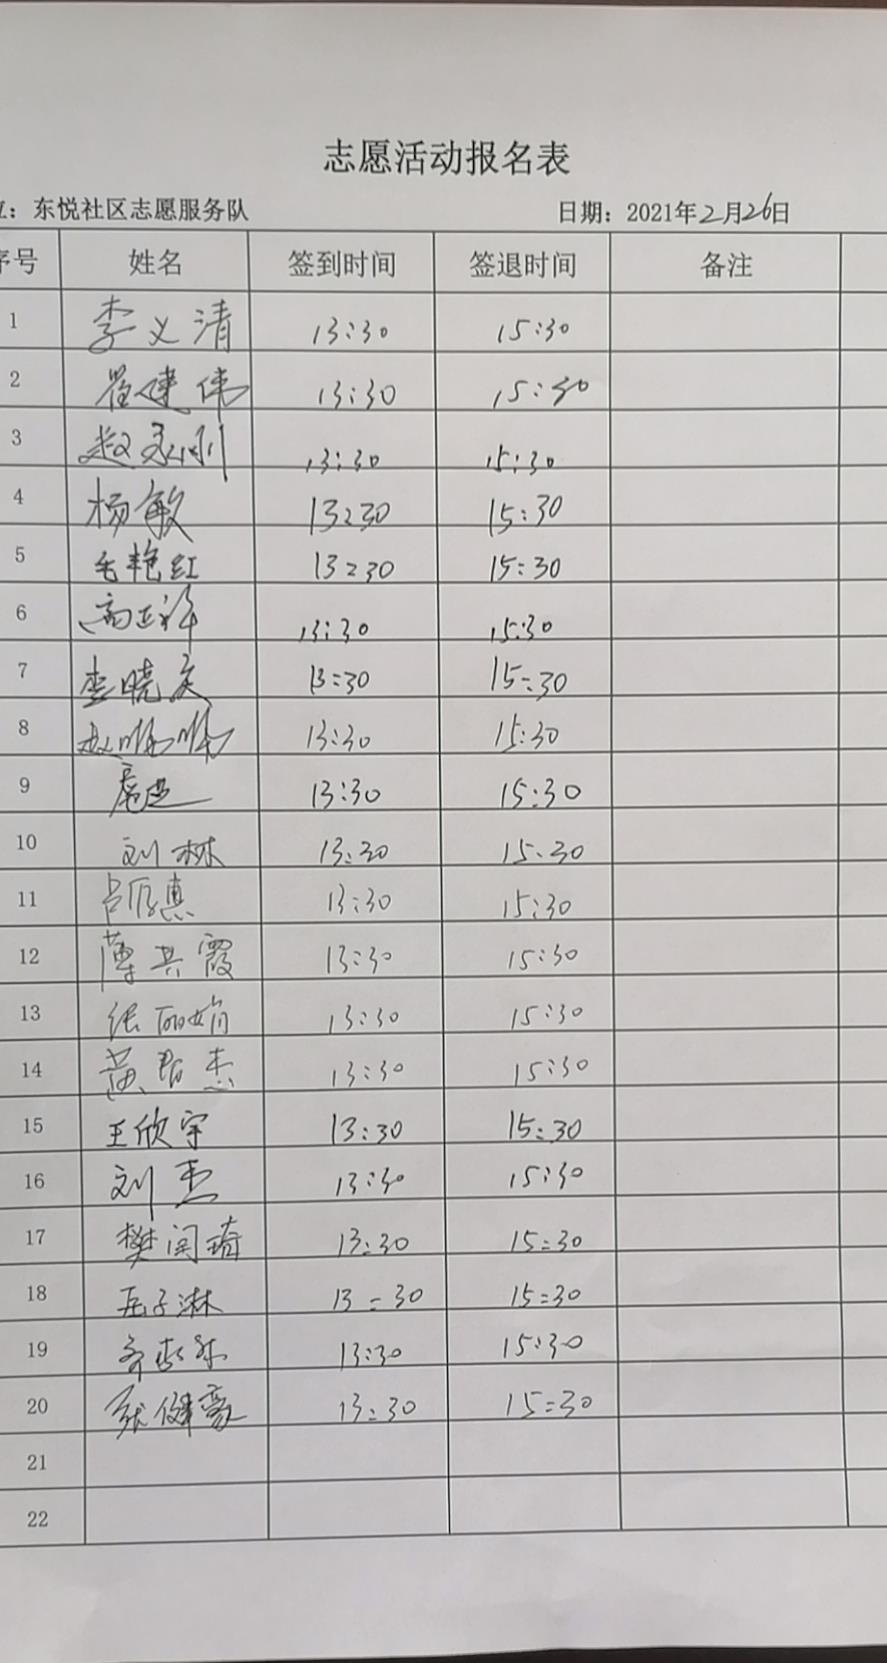 志愿活动报名表
位：东悦社区志愿服务队 日期：2021年2月26日
序号 姓名 签到时间 签退时间 备注
1 李义清 13:30 15:30
2 翟建伟 13:30 15:30
3 13:30 15:30
4 杨敏 13:30 15:30
5 毛艳红 13:30 15:30
6 13:30 15:30
7 李晓庆 13:30 15:30
8 13:30 15:30
9 13:30 15:30
10 刘林 13:30 15:30
11 13:30 15:30
12 薄其霞 13:30 15:30
13 张丽娟 13:30 15:30
14 黄君杰 13:30 15:30
15 王欣宇 13:30 15:30
16 刘杰 13:30 15:30
17 樊闰琦 13:30 15:30
18 13:30 15:30
19 13:30 15:30
20 张健豪 13:30 15:30
21
22